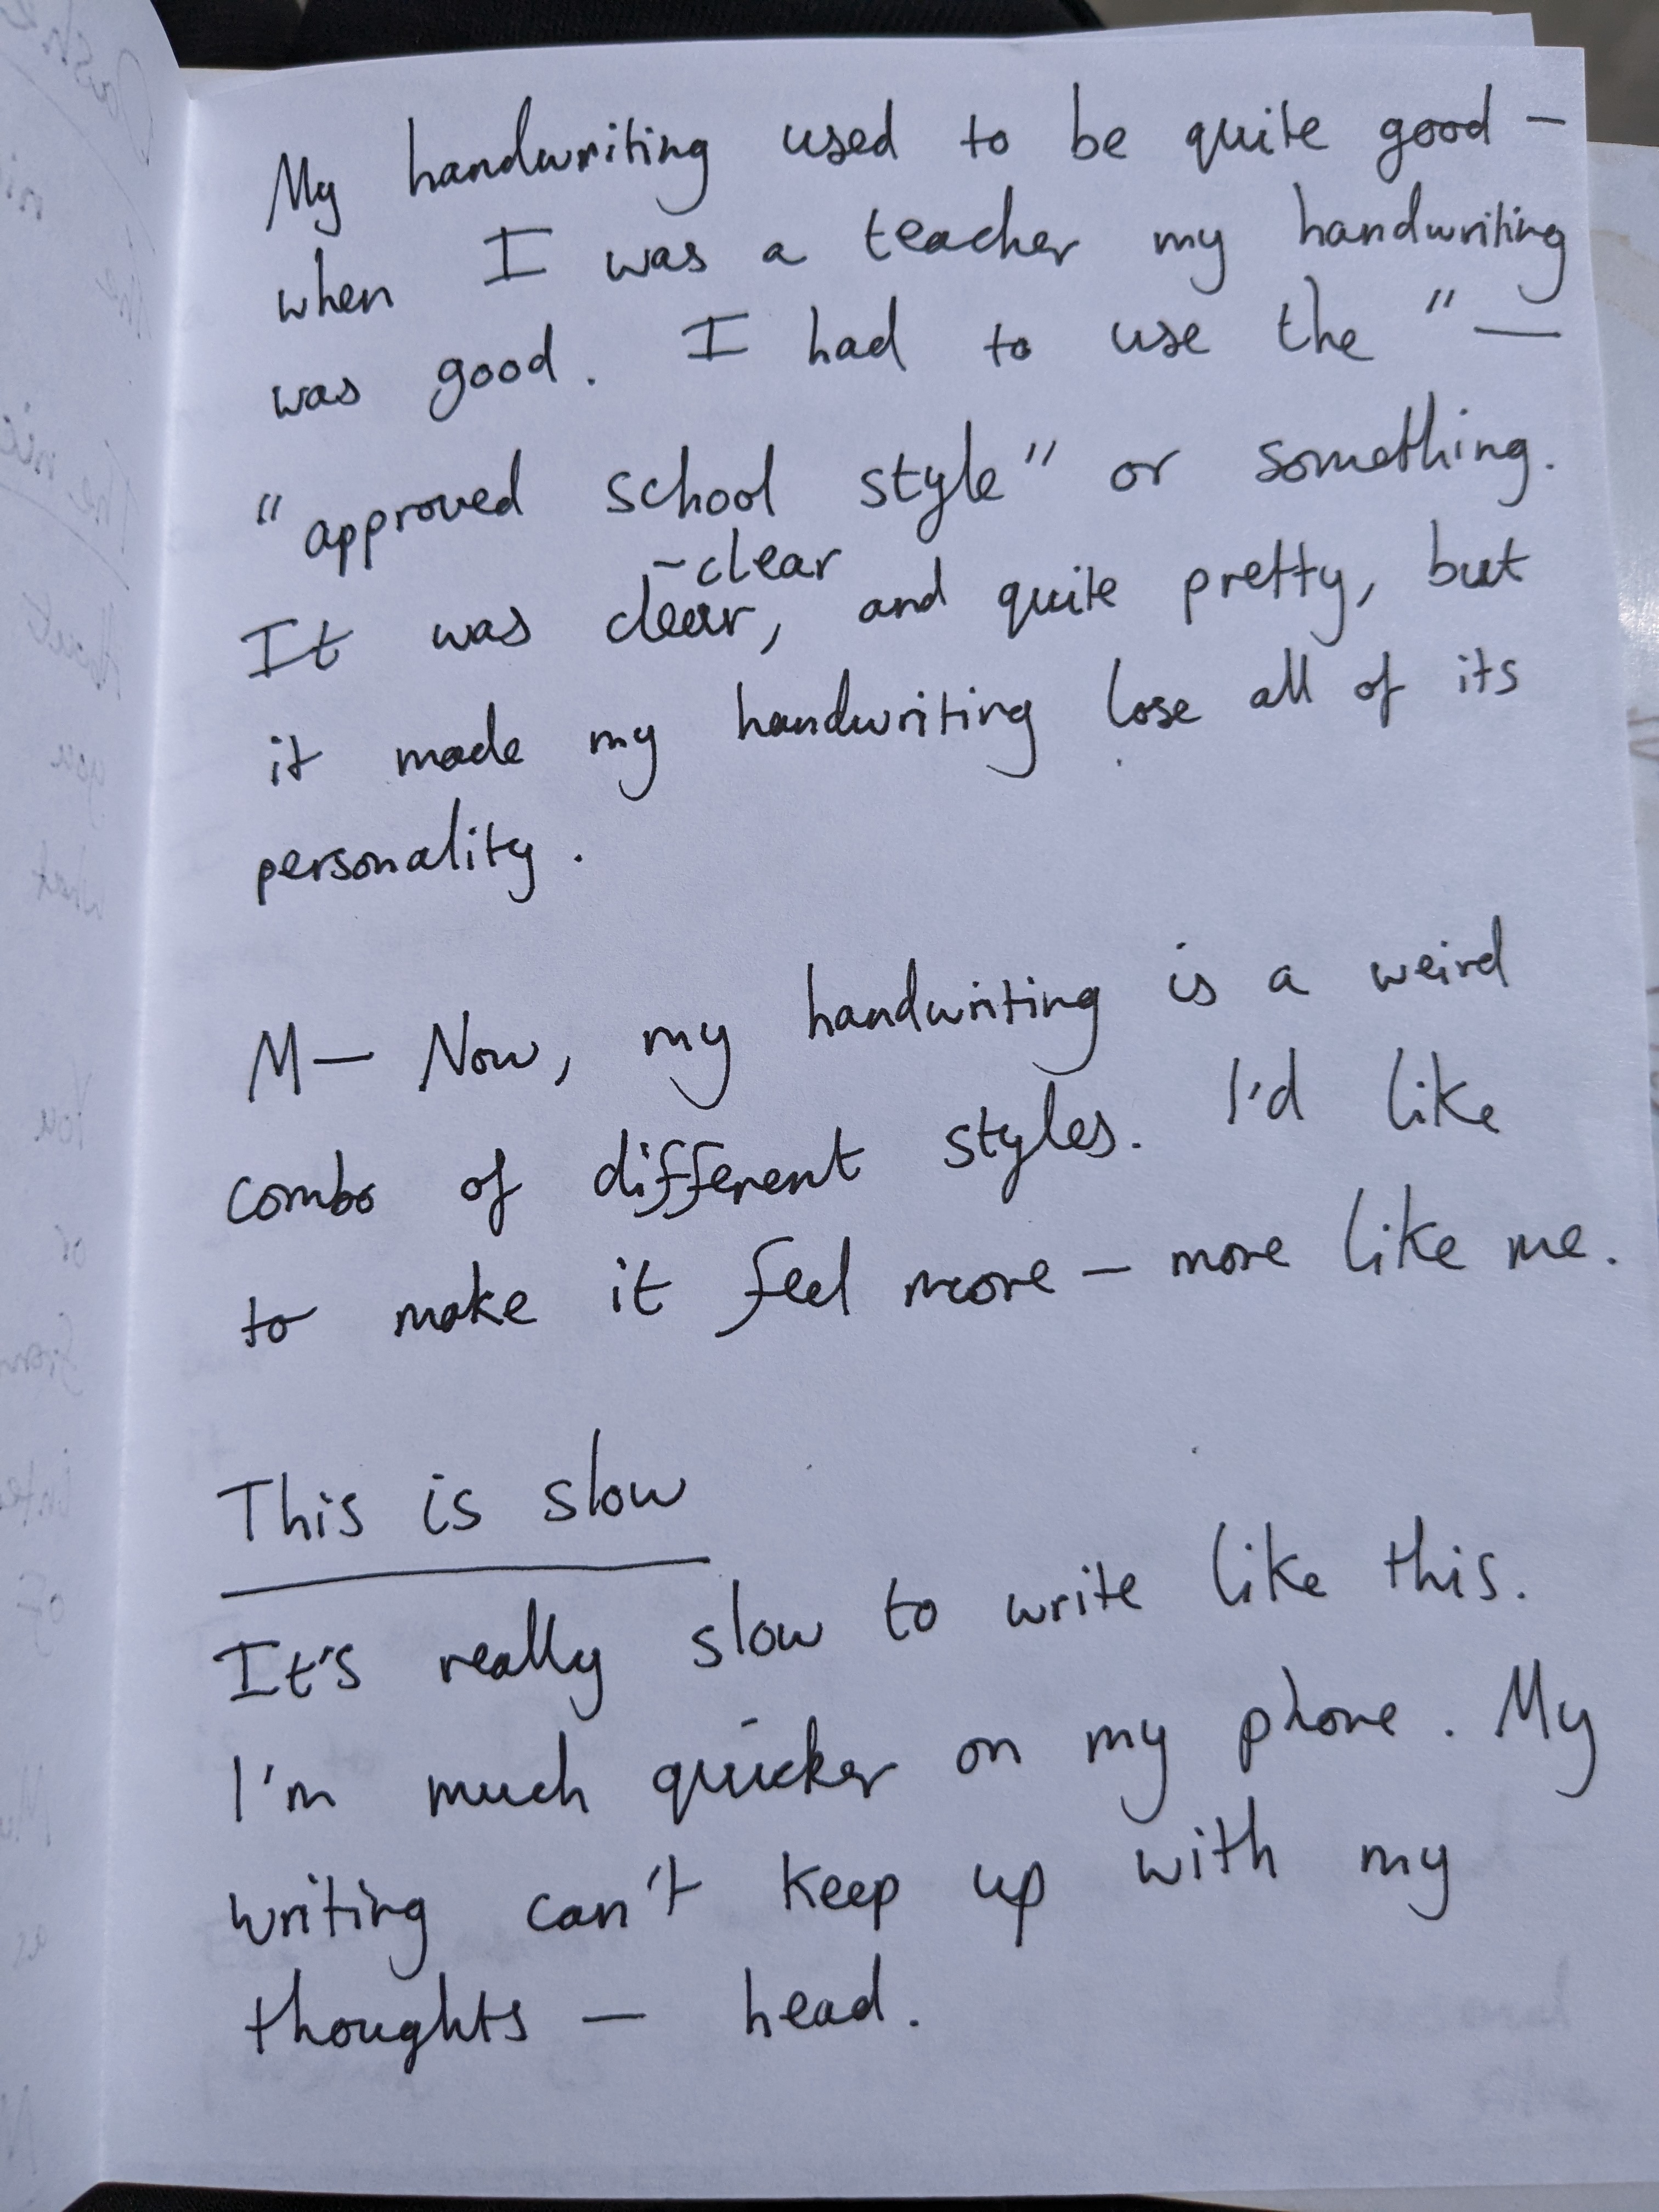 My handwriting used to be quite good –
when I was a teacher my handwriting
was good. I had to use the "—
"approved school style" or something.
– clear
It was clear, and quite pretty, but
it made my handwriting lose all of its
personality.
M— Now, my handwriting is a weird
combo of different styles. I'd like
to make it feel more – more like me.
This is slow
It's really slow to write like this.
I'm much quicker on my phone. My
writing can't keep up with my
thoughts — head.